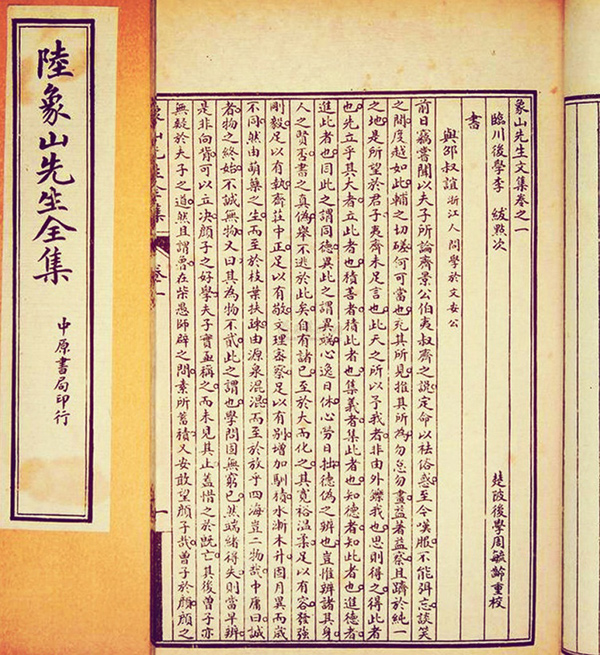 陸象山先生全集
中原書局印行
象山先生文集卷之一
臨川後學李紱點次 楚陂後學周毓齡重校
書
與邵叔誼 浙江人問學於文安公
前日竊嘗聞以夫子所論齊景公伯夷叔齊之說定命以祛俗惑至今嘆服不能弭忘談笑
之間度越如此輔之切磋何可當也充其所見推其所為勿怠勿畫益著益察日躋於純一
之地是所望於君子夷齊未足言也此天之所以予我者非由外鑠我也思則得之得此者
也先立乎其大者立此者也積善者積此者也集義者集此者也知德者知此者也進德者
進此者也同此之謂同德異此之謂異端心逸日休心勞日拙德偽之辨也豈惟辨諸其身
人之賢否書之真偽舉不逃於此矣自有諸己至於大而化之其寬裕溫柔足以有容發強
剛毅足以有執齋莊中正足以有敬文理密察足以有別增加馴積水漸木升固月異而歲
不同然由萌蘗之生而至於枝葉扶疎由源泉混混而至於放乎四海豈二物哉中庸曰誠
者物之終始不誠無物又曰其為物不貳此之謂也學問固無窮已然端緒得失則當早辨
是非向背可以立決顏子之好學夫子實亟稱之而未見其止蓋惜之於既亡其後曾子亦
無疑於夫子之道然且謂魯在柴愚師辟之間素所蓄積又安敢望顏子哉曾子於顏顏之
象山先生全集 卷一 一